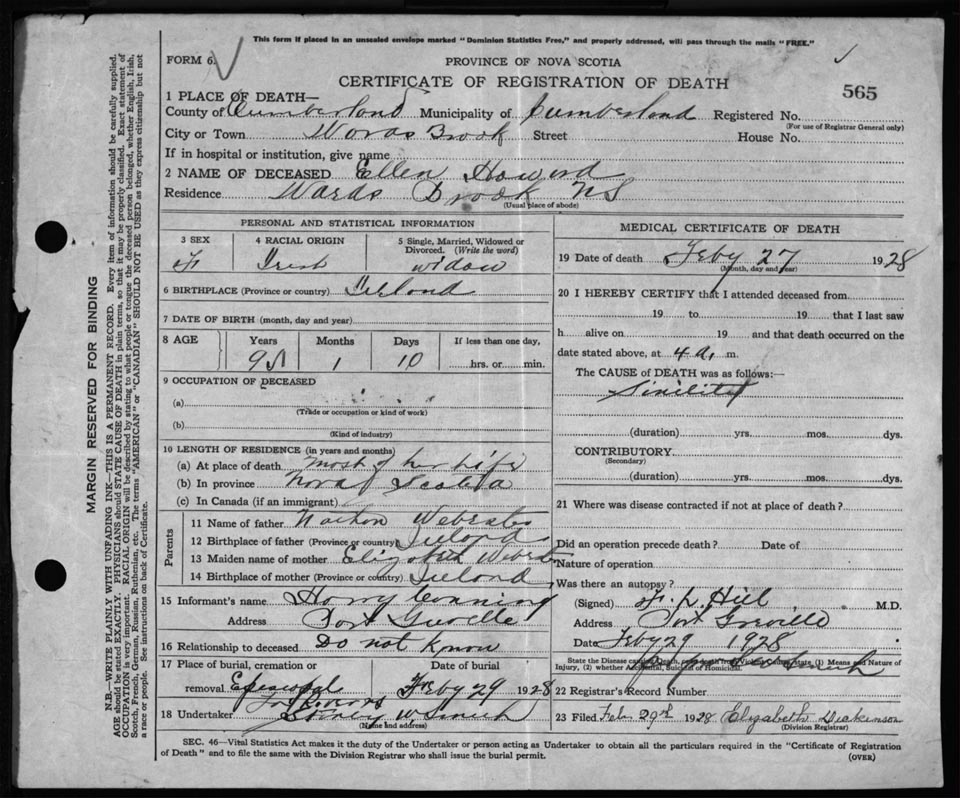 This form if placed in an unsealed envelope marked "Dominion Statistics Free," and properly addressed, will pass through the mails "FREE."
FORM 6.
PROVINCE OF NOVA SCOTIA
CERTIFICATE OF REGISTRATION OF DEATH
565
1 PLACE OF DEATH—
County of Cumberland Municipality of Cumberland Registered No.
(For use of Registrar General only)
City or Town Wards Brook Street House No.
If in hospital or institution, give name
2 NAME OF DECEASED Ellen Howard
Residence Wards Brook NS
(Usual place of abode)
PERSONAL AND STATISTICAL INFORMATION
3 SEX 4 RACIAL ORIGIN 5 Single, Married, Widowed or Divorced. (Write the word)
F Irish widow
6 BIRTHPLACE (Province or country) Ireland
7 DATE OF BIRTH (month, day and year)
8 AGE Years Months Days If less than one day,
1 10 hrs. or min.
9 OCCUPATION OF DECEASED
(a)
(Trade or occupation or kind of work)
(b)
(Kind of industry)
10 LENGTH OF RESIDENCE (in years and months)
(a) At place of death most of her Life
(b) In province Nova Scotia
(c) In Canada (if an immigrant)
Parents
11 Name of father Webster
12 Birthplace of father (Province or country) Ireland
13 Maiden name of mother Elizabeth
14 Birthplace of mother (Province or country) Ireland
15 Informant's name Harry Conning
Address Port Greville
16 Relationship to deceased Do not Know
17 Place of burial, cremation or removal Date of burial
Episcopal Feby 29 1928
18 Undertaker Smith
(Name and address)
MEDICAL CERTIFICATE OF DEATH
19 Date of death Feby 27 1928
(Month, day and year)
20 I HEREBY CERTIFY that I attended deceased from
19 to 19 that I last saw
h alive on 19 and that death occurred on the
date stated above, at 4 a. m.
The CAUSE of DEATH was as follows:—
Sinility
(duration) yrs. mos. dys.
CONTRIBUTORY
(Secondary)
(duration) yrs. mos. dys.
21 Where was disease contracted if not at place of death?
Did an operation precede death? Date of
Nature of operation
Was there an autopsy?
(Signed) Hill M.D.
Address Port Greville
Date Feby 29 1928
State the Disease causing Death, or in death from Violent Causes, state (1) Means and Nature of Injury, (2) whether Accidental, Suicidal or Homicidal.
22 Registrar's Record Number
23 Filed Feb 29th 1928 Elizabeth Dickinson
(Division Registrar)
SEC. 46—Vital Statistics Act makes it the duty of the Undertaker or person acting as Undertaker to obtain all the particulars required in the "Certificate of Registration
of Death" and to file the same with the Division Registrar who shall issue the burial permit.
(OVER)
MARGIN RESERVED FOR BINDING
N.B.—WRITE PLAINLY WITH UNFADING INK—THIS IS A PERMANENT RECORD. Every item of information should be carefully supplied.
AGE should be stated EXACTLY. PHYSICIANS should STATE CAUSE OF DEATH in plain terms, so that it may be properly classified. Exact statement of
OCCUPATION is very important. RACIAL ORIGIN will be described by stating to what people or tongue the deceased person belonged, whether English, Irish,
Scotch, French, German, Russian, Ruthenian, etc. The terms "AMERICAN" or "CANADIAN" SHOULD NOT BE USED as they express citizenship but not
a race or people. See instructions on back of Certificate.